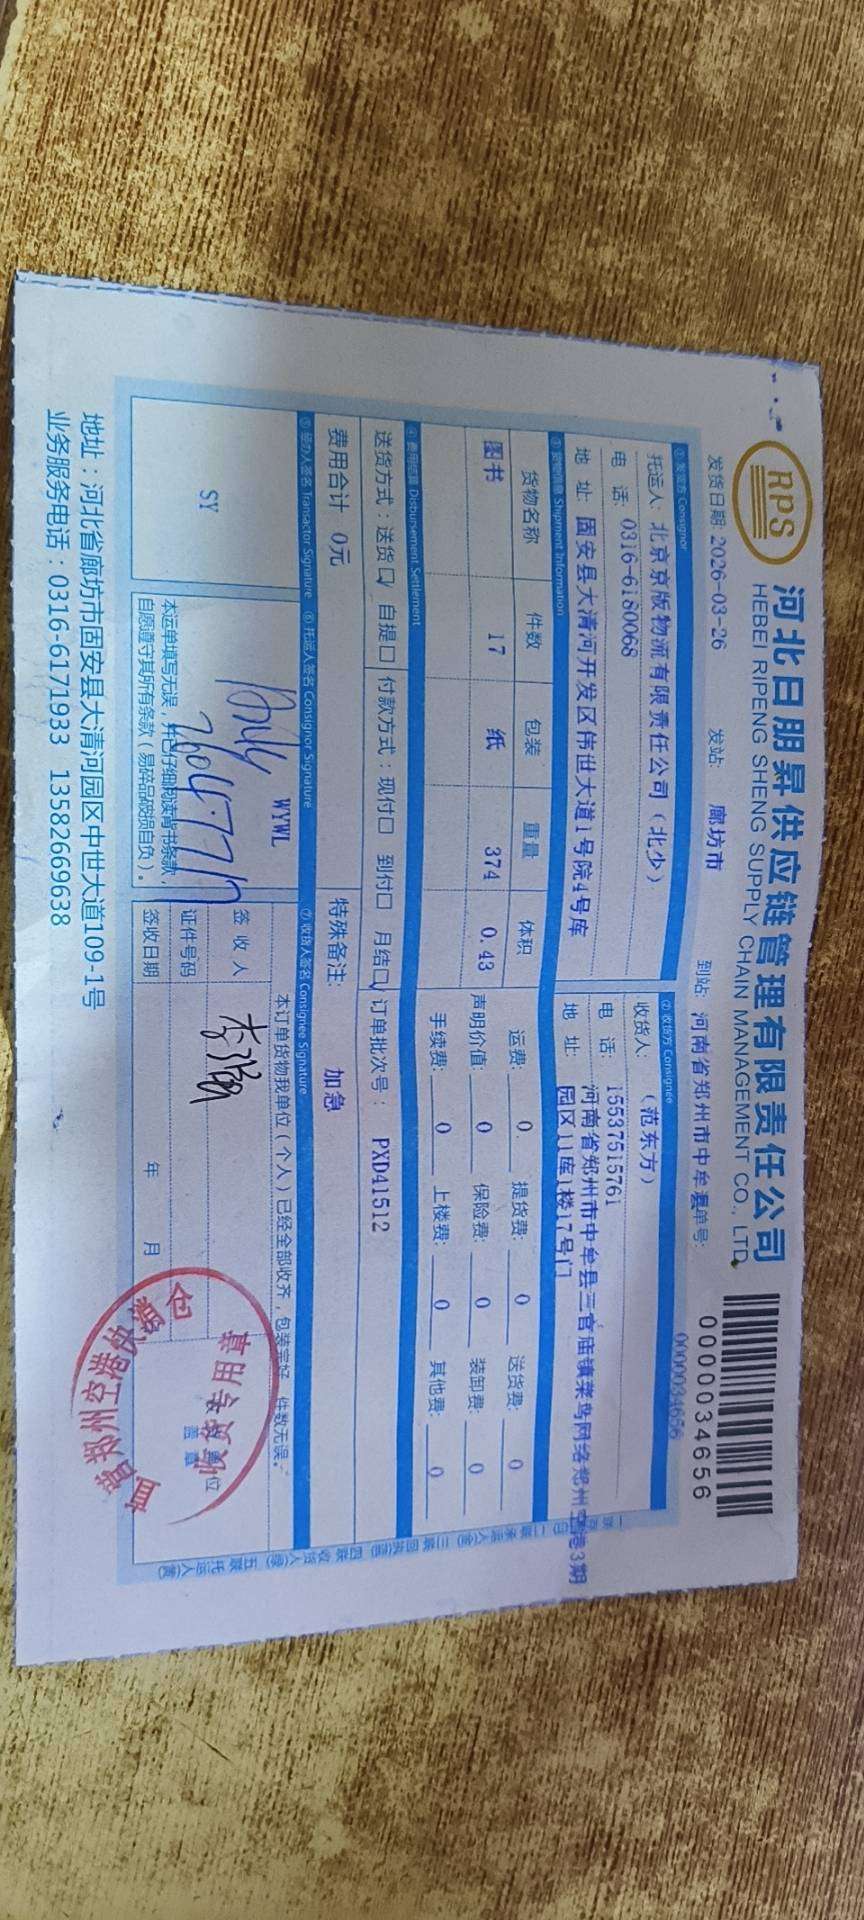 RPS
河北日朋昇供应链管理有限责任公司
HEBEI RIPENG SHENG SUPPLY CHAIN MANAGEMENT CO., LTD
0000034656
发货日期 2026-03-26 发站: 廊坊市 到站: 河南省郑州市中牟县 单号: 0000034656
①发货方 Consignor ②收货方 Consignee
托运人: 北京京版物流有限责任公司（北少） 收货人: （范东方）
电 话: 0316-6180068 电 话: 15537515761
地 址: 固安县大清河开发区伟世大道1号院4号库 地 址: 河南省郑州市中牟县三官庙镇菜鸟网络郑州空港3期
园区11库1楼17号门
③货物信息 Shipment Information
货物名称 件数 包装 重量 体积 运费: 0 提货费: 0 送货费: 0
图书 17 纸 374 0.43 声明价值: 0 保险费: 0 装卸费: 0
手续费: 0 上楼费: 0 其他费: 0
④费用结算 Disbursement Settlement
送货方式：送货☑ 自提☐ 付款方式：现付☐ 到付☐ 月结☑ 订单批次号： PXD41512
费用合计 0元 特殊备注: 加急
⑤经办人签名 Transactor Signature ⑥托运人签名 Consignor Signature ⑦收货人签名 Consignee Signature
SY
WYWL
本运单填写无误，并已仔细阅读背书条款，
自愿遵守其所有条款（易碎品破损自负）。
本订单货物我单位（个人）已经全部收齐，包装完好，件数无误。
签 收 人
证件号码
签收日期 年 月
盖 章
收货专用章
地址：河北省廊坊市固安县大清河园区中世大道109-1号
业务服务电话：0316-6171933 13582669638